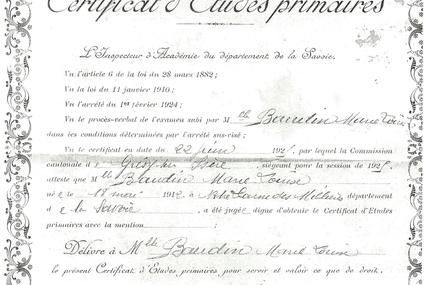 Certificat d'Etudes primaires
L'Inspecteur d'Académie du département de la Savoie,
Vu l'article 6 de la loi du 28 mars 1882;
Vu la loi du 11 janvier 1910;
Vu l'arrêté du 1er février 1924;
Vu le procès-verbal de l'examen subi par Mlle Baudin Marie Louise
dans les conditions déterminées par l'arrêté sus-visé;
Vu le certificat en date du 22 juin 192 , par lequel la Commission
cantonale d siégeant pour la session de 192
atteste que Mlle Baudin Marie Louise
née le 18 1912 à Notre Dame des Millières département
de la Savoie , a été jugée digne d'obtenir le Certificat d'Etudes
primaires avec la mention ;
Délivre à Mlle Baudin Marie Louise
le présent Certificat d'Etudes primaires pour servir et valoir ce que de droit.